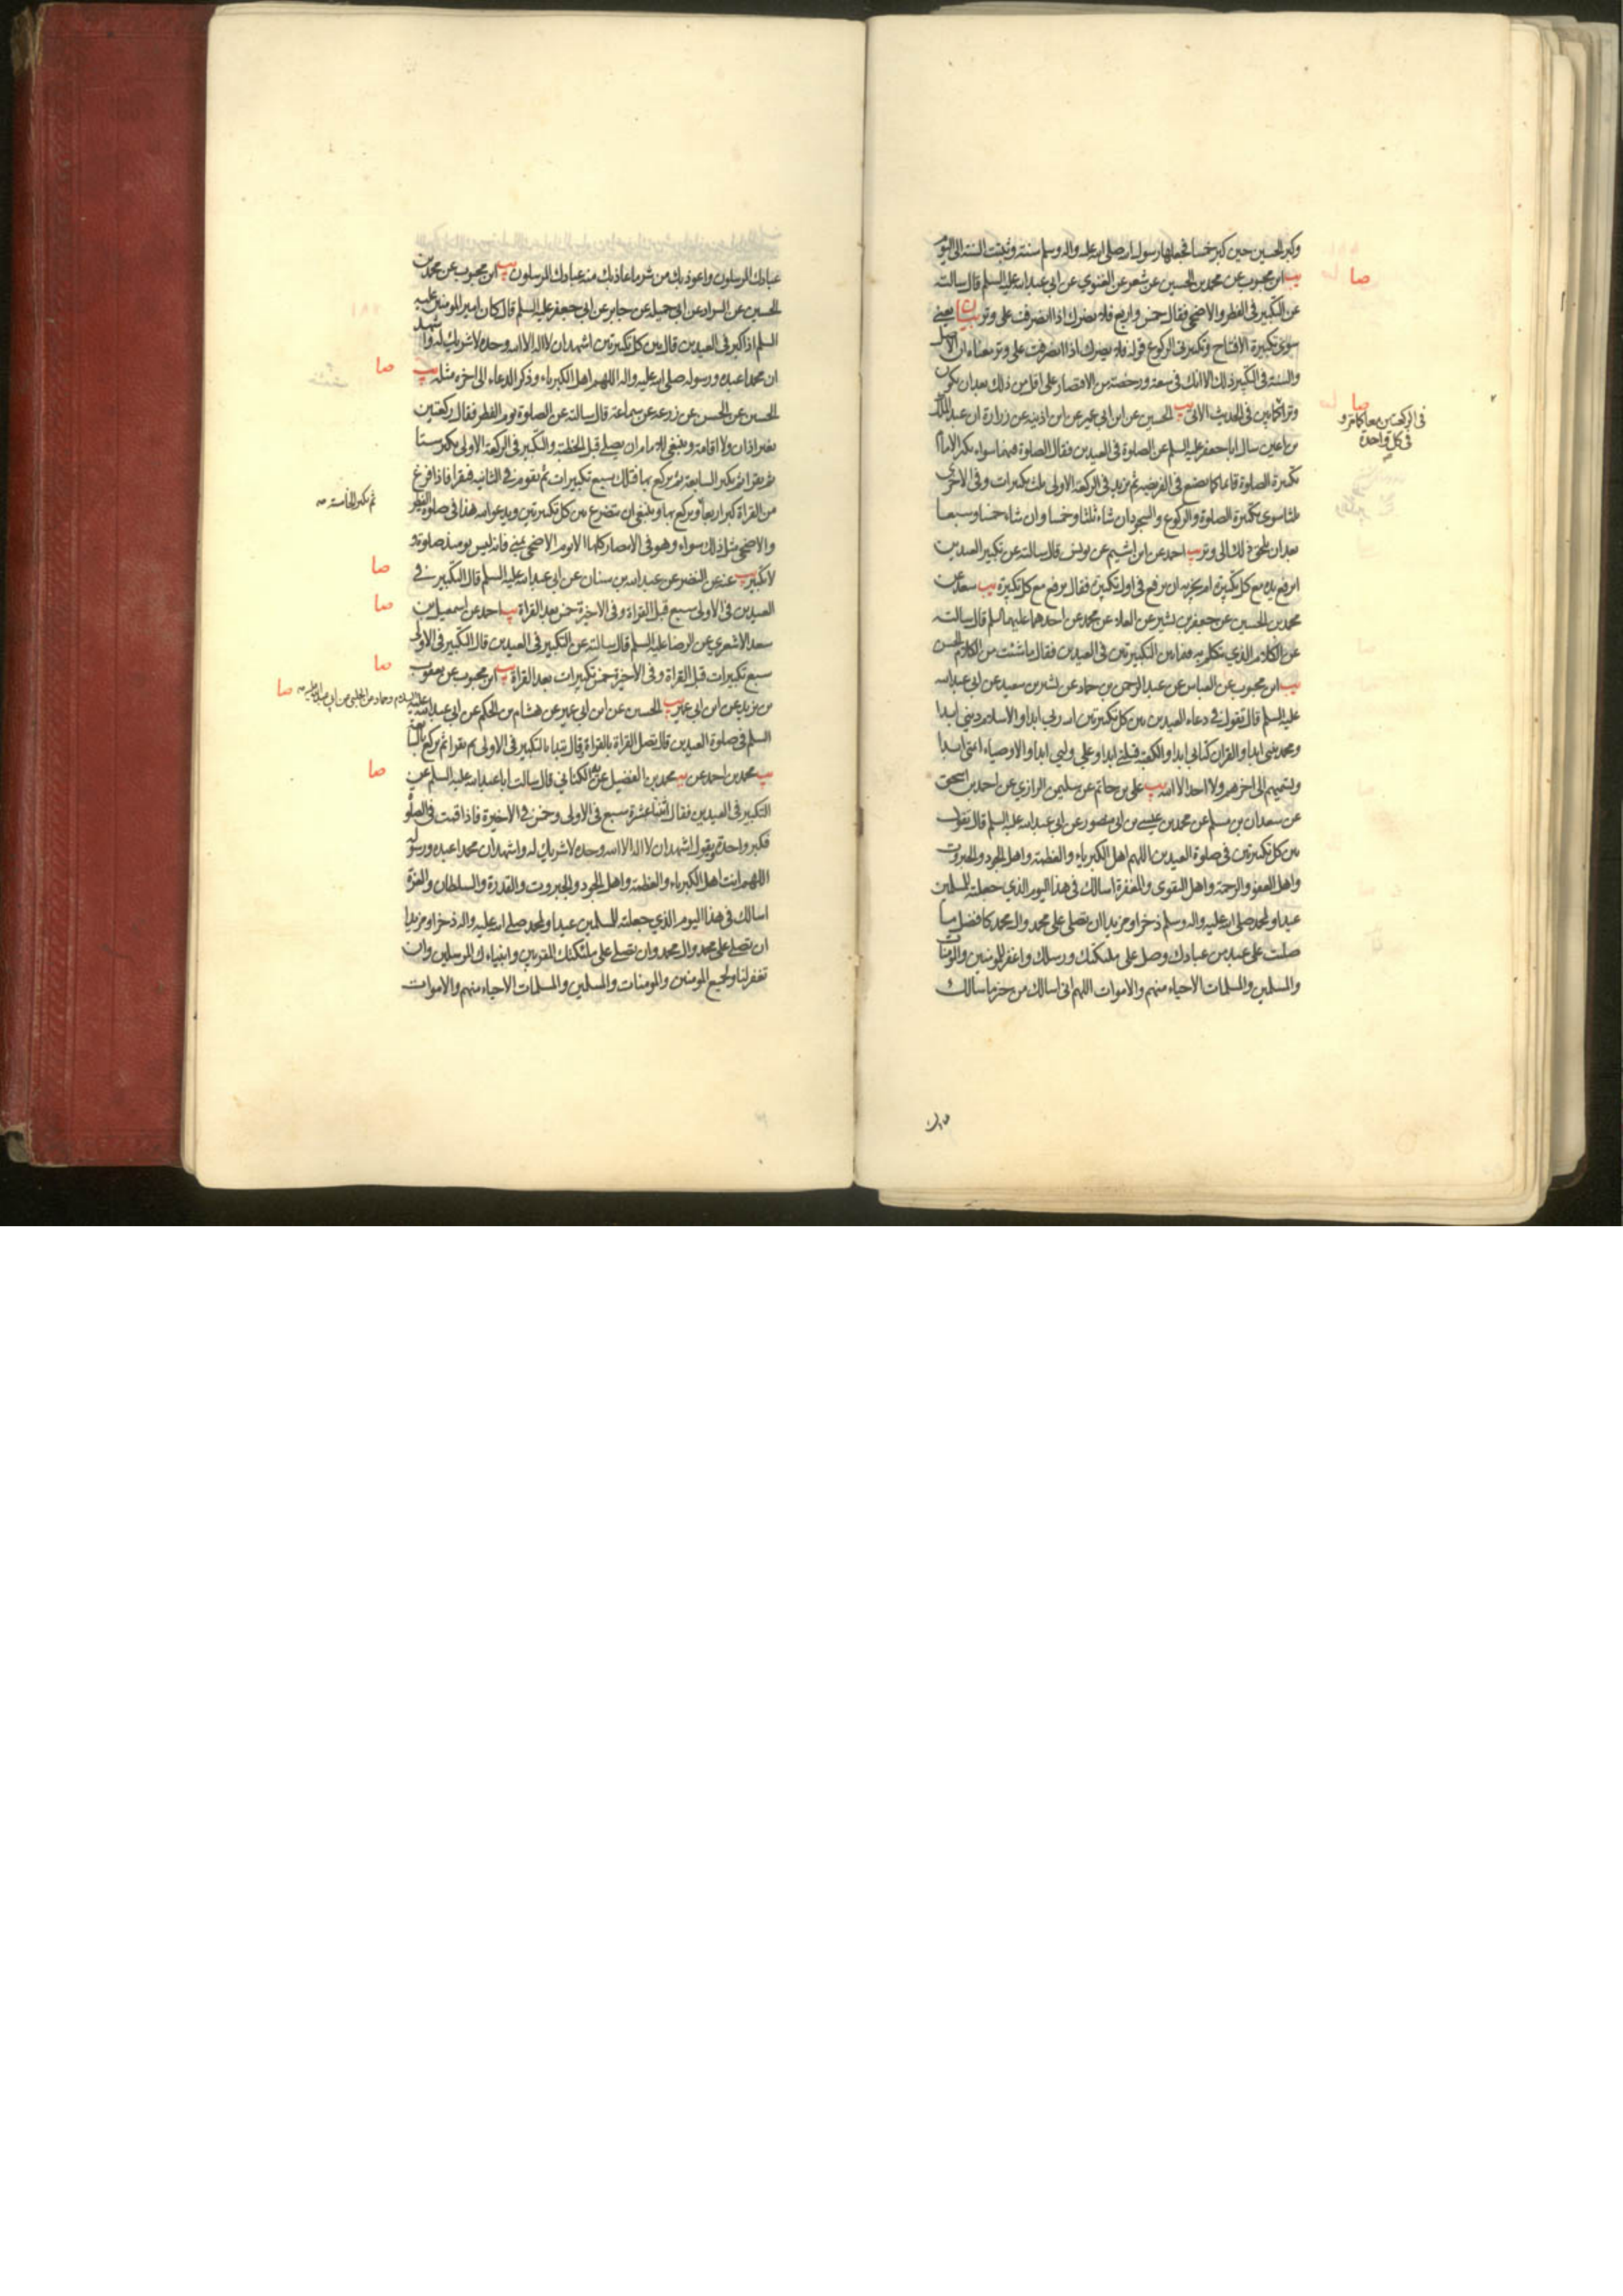 وكبر الحسين حين كبر خمسا فجعلها رسول الله صلى الله عليه واله وسلم سنة وثبتت السنة الى اليوم
يب ابن محبوب عن محمد بن الحسين عن شعر عن الغنوي عن ابي عبد الله عليه السلم قال سالته
عن التكبير في الفطر والاضحى فقال خمس واربع فلا يضرك اذا انصرفت على وتر بيان يعني
سوى تكبيرة الافتتاح وتكبيرتي الركوع قوله فلا يضرك اذا انصرفت على وتر معناه ان الاصل
والسنة في التكبير ذلك الا انك في سعة ورخصة من الاقتصار على اقل من ذلك بعد ان يكون
وترا كما يبين في الحديث الاتي يب الحسين عن ابن ابي عمير عن ابن اذينة عن زرارة ان عبد الملك
بن اعين سال ابا جعفر عليه السلم عن الصلوة في العيدين فقال الصلوة فيهما سواء يكبر الامام
تكبيرة الصلوة قائما كما يصنع في الفريضة ثم يزيد في الركعة الاولى ثلث تكبيرات وفي الاخرى
ثلثا سوى تكبيرة الصلوة والركوع والسجود ان شاء ثلثا وخمسا وان شاء خمسا وسبعا
بعد ان يلحق ذلك الى وتر يب احمد عن ابن اشيم عن يونس قال سالته عن تكبير العيدين
ايرفع يده مع كل تكبيرة ام يجزيه ان يرفع في اول تكبيرة فقال يرفع مع كل تكبيرة يب سعد عن
محمد بن الحسين عن جعفر بن بشير عن العلاء عن محمد عن احدهما عليهما السلم قال سالته
عن الكلام الذي يتكلم به فيما بين التكبيرتين في العيدين فقال ما شئت من الكلام الحسن
يب ابن محبوب عن العباس عن عبد الرحمن بن حماد عن بشير بن سعيد عن ابي عبد الله
عليه السلم قال تقول في دعاء العيدين بين كل تكبيرتين الله ربي ابدا والاسلام ديني ابدا
ومحمد نبيي ابدا والقران كتابي ابدا والكعبة قبلتي ابدا وعلي وليي ابدا والاوصياء ائمتي ابدا
وتسميهم الى اخرهم ولا احد الا الله يب علي بن حاتم عن سليمن الرازي عن احمد بن اسحق
عن سعدان بن مسلم عن محمد بن عيسى بن ابي منصور عن ابي عبد الله عليه السلم قال تقول
بين كل تكبيرتين في صلوة العيدين اللهم اهل الكبرياء والعظمة واهل الجود والجبروت
واهل العفو والرحمة واهل التقوى والمغفرة اسالك في هذا اليوم الذي جعلته للمسلمين
عيدا ولمحمد صلى الله عليه واله وسلم ذخرا ومزيدا ان تصلي على محمد وال محمد كافضل ما
صليت على عبد من عبادك وصل على ملئكتك ورسلك واغفر للمؤمنين والمؤمنات
والمسلمين والمسلمات الاحياء منهم والاموات اللهم اني اسالك من خير ما سالك
صا
صا
في الركعتين معا كما مر و
في كل واحدة
عبادك المرسلون واعوذ بك من شر ما عاذ بك منه عبادك المرسلون يب ابن محبوب عن محمد بن
الحسين عن السراد عن ابي جميلة عن جابر عن ابي جعفر عليه السلم قال كان امير المؤمنين عليه
السلم اذا كبر في العيدين قال بين كل تكبيرتين اشهد ان لا اله الا الله وحده لا شريك له واشهد
ان محمدا عبده ورسوله صلى الله عليه واله اللهم اهل الكبرياء وذكر الدعاء الى اخره مثله يب
الحسين عن الحسن عن زرعة عن سماعة قال سالته عن الصلوة يوم الفطر فقال ركعتين
بغير اذان ولا اقامة وينبغي للامام ان يصلي قبل الخطبة والتكبير في الركعة الاولى يكبر ستا
ثم يقرا ثم يكبر السابعة ثم يركع بها فتلك سبع تكبيرات ثم يقوم في الثانية فيقرا فاذا فرغ
من القراة كبر اربعا ويركع بها وينبغي ان يتضرع بين كل تكبيرتين ويدعو الله هذا في صلوة الفطر
والاضحى مثل ذلك سواء وهو في الامصار كلها الا يوم الاضحى بمنى فانه ليس يومئذ صلوة و
لا تكبير يب عنه عن النضر عن عبد الله بن سنان عن ابي عبد الله عليه السلم قال التكبير في
العيدين في الاولى سبع قبل القراة وفي الاخيرة خمس بعد القراة يب احمد عن اسمعيل بن
سعد الاشعري عن الرضا عليه السلم قال سالته عن التكبير في العيدين قال التكبير في الاولى
سبع تكبيرات قبل القراة وفي الاخيرة خمس تكبيرات بعد القراة يب ابن محبوب عن يعقوب
بن يزيد عن ابن ابي عمير يب الحسين عن ابن ابي عمير عن هشام بن الحكم عن ابي عبد الله عليه
السلم في صلوة العيدين قال تصل القراة بالقراة وقال تبدا بالتكبير في الاولى ثم تقرا ثم تركع بالسابعة
يب محمد بن احمد عن يه محمد بن الفضيل عن الكناني قال سالت ابا عبد الله عليه السلم عن
التكبير في العيدين فقال اثنتا عشرة سبع في الاولى وخمس في الاخيرة فاذا قمت في الصلوة
فكبر واحدة وتقول اشهد ان لا اله الا الله وحده لا شريك له واشهد ان محمدا عبده ورسوله
اللهم انت اهل الكبرياء والعظمة واهل الجود والجبروت والقدرة والسلطان والعزة
اسالك في هذا اليوم الذي جعلته للمسلمين عيدا ولمحمد صلى الله عليه واله ذخرا ومزيدا
ان تصلي على محمد وال محمد وان تصلي على ملئكتك المقربين وانبياءك المرسلين وان
تغفر لنا ولجميع المؤمنين والمؤمنات والمسلمين والمسلمات الاحياء منهم والاموات
صا
ثم يكبر الخامسة
صا
صا
صا
السلام وحماد عن الحلبي عن ابي عبد الله عليه
صا
صا